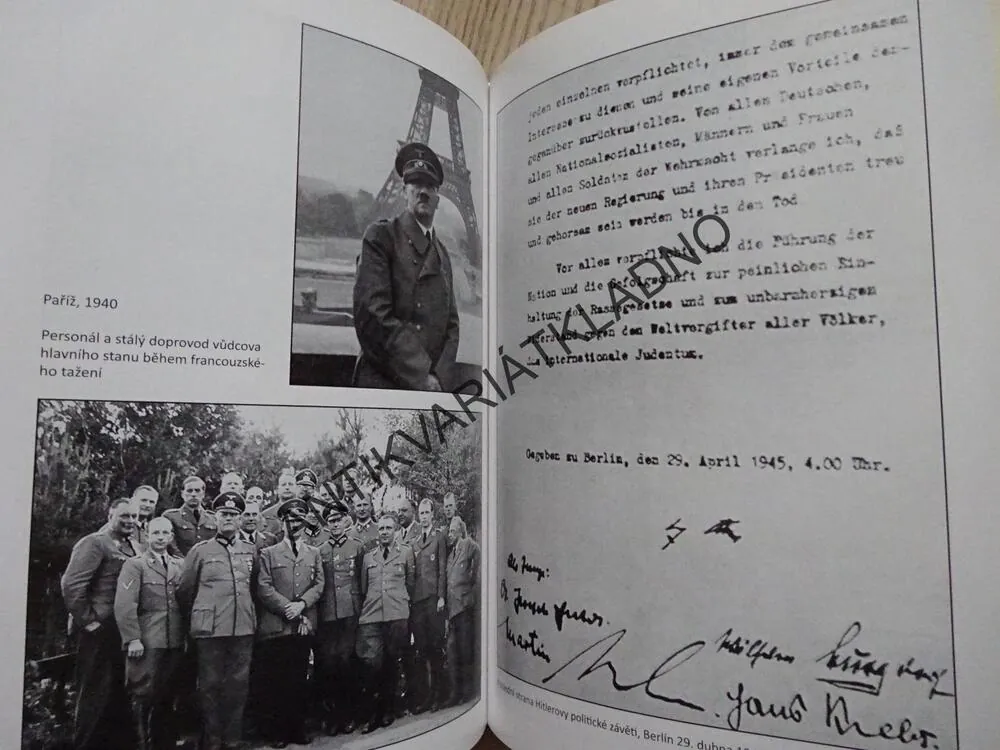 Paříž, 1940
Personál a stálý doprovod vůdcova
hlavního stanu během francouzské-
ho tažení
jeden einzelnen verpflichtet, immer dem gemeinsamen
Interesse zu dienen und seine eigenen Vorteile dem-
gegenüber zurückzustellen. Von allen Deutschen,
allen Nationalsozialisten, Männern und Frauen
und allen Soldaten der Wehrmacht verlange ich, daß
sie der neuen Regierung und ihren Präsidenten treu
und gehorsam sein werden bis in den Tod
Vor allem verpflichte ich die Führung der
Nation und die Gefolgschaft zur peinlichen Ein-
haltung der Rassegesetze und zum unbarmherzigen
Widerstand gegen den Weltvergifter aller Völker,
das internationale Judentum.
Gegeben zu Berlin, den 29. April 1945, 4.00 Uhr.
Als Zeuge:
Martin
Wilhelm
Hans Krebs
strana Hitlerovy politické závěti, Berlín 29. dubna
ANTIKVARIÁTKLADNO